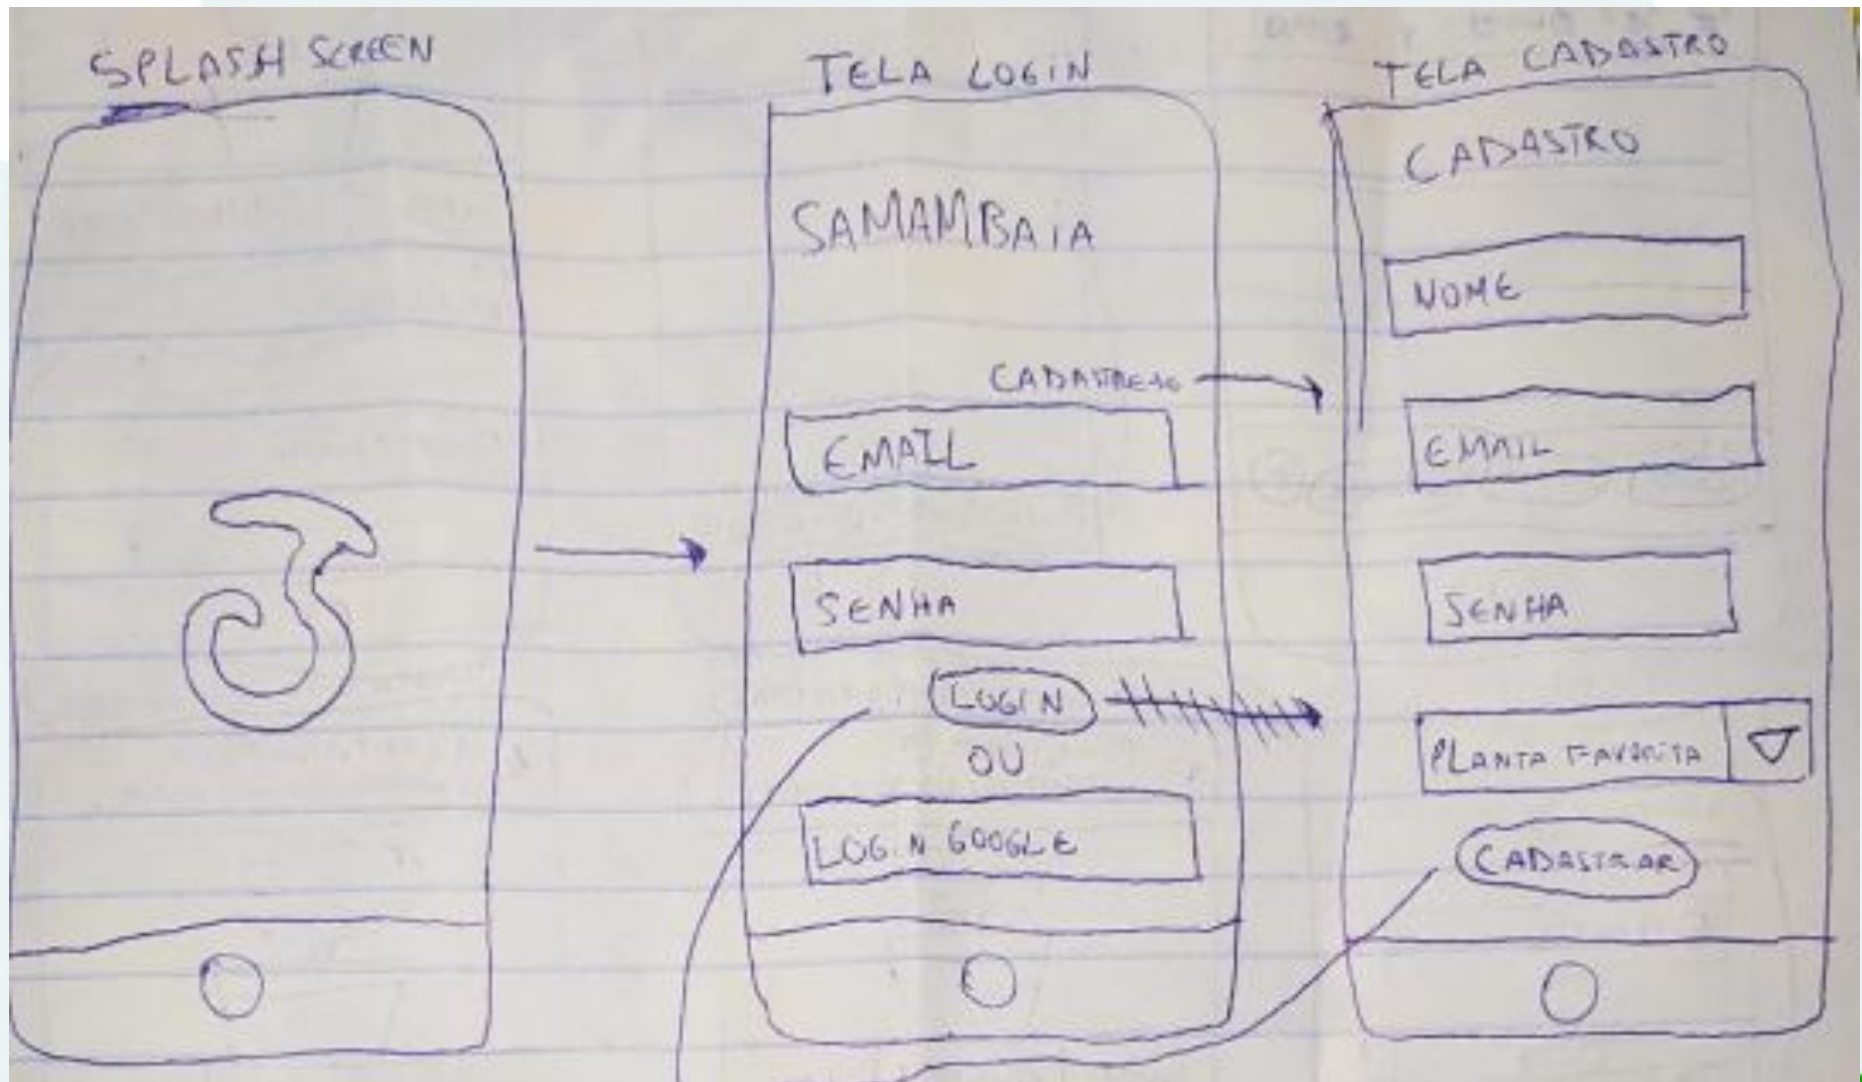 SPLASH SCREEN
TELA LOGIN
SAMAMBAIA
CADASTRE-SE
EMAIL
SENHA
LOGIN
OU
LOGIN GOOGLE
TELA CADASTRO
CADASTRO
NOME
EMAIL
SENHA
PLANTA FAVORITA
CADASTRAR